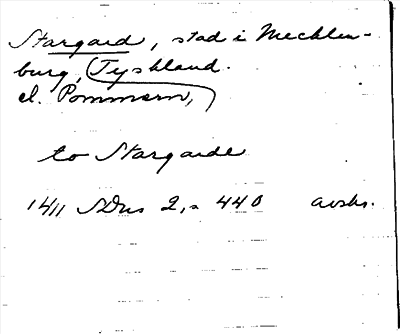 Stargard, stad i Mecklen-
burg, Tyskland.
el. Pommern,
to Stargarde
1411 SDns 2, s 440 avskr.